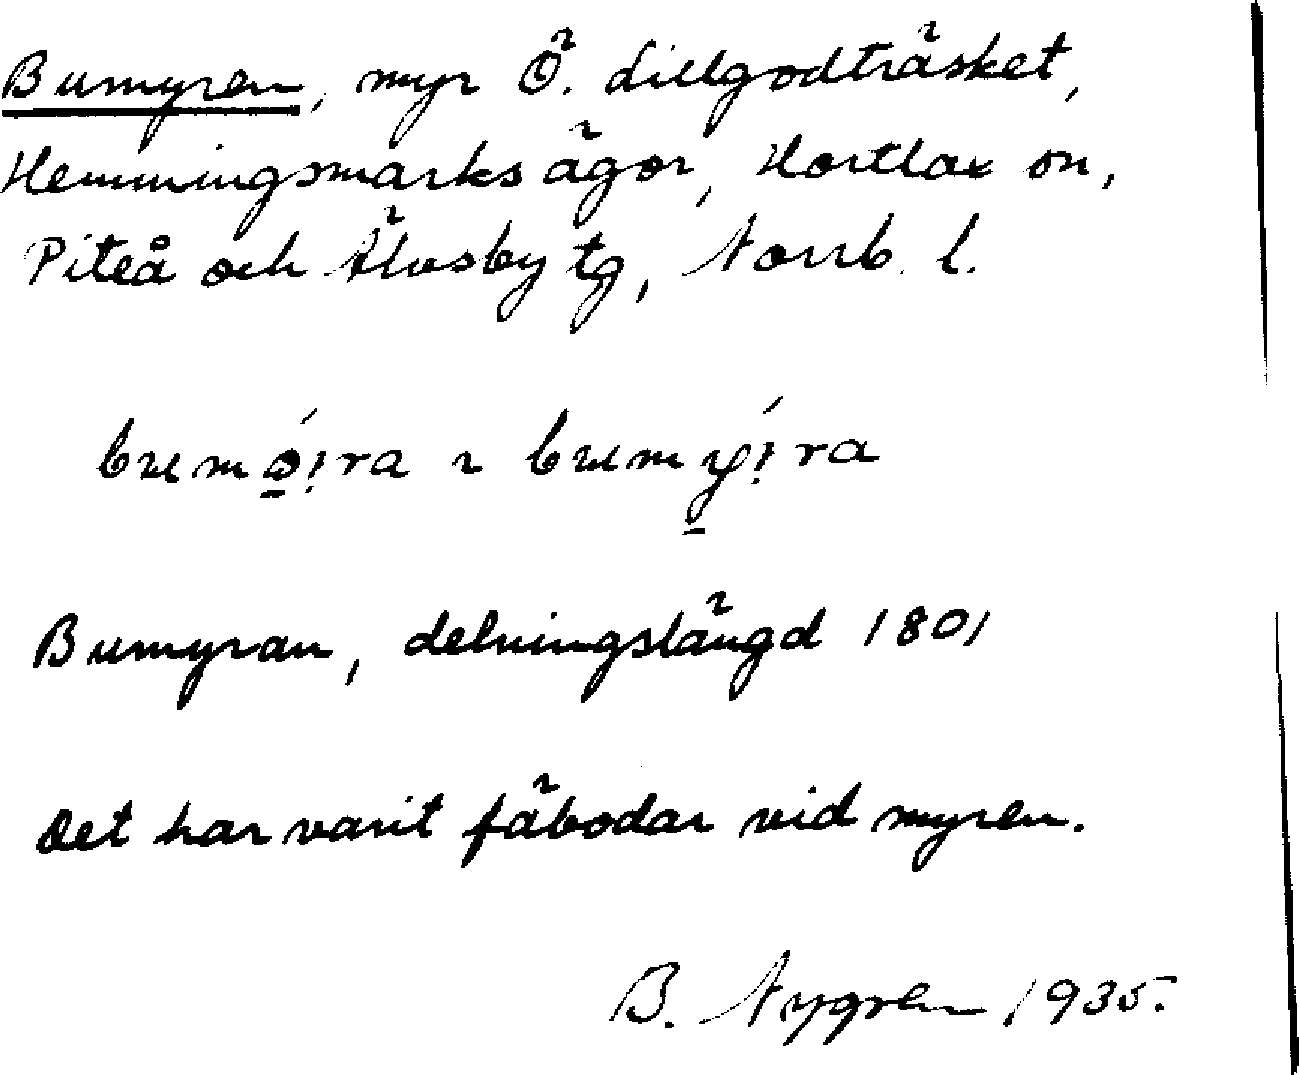 Bumyren, myr Ö. Lillgodträsket,
Hemmingsmarks ägor, Hortlax sn,
Piteå och Älvsby tg, Norrb. l.
bumǿ̱!ra ~ bumý̱!ra
Bumyran, delningslängd 1801
Det har varit fäbodar vid myren.
B. Nygren 1935.